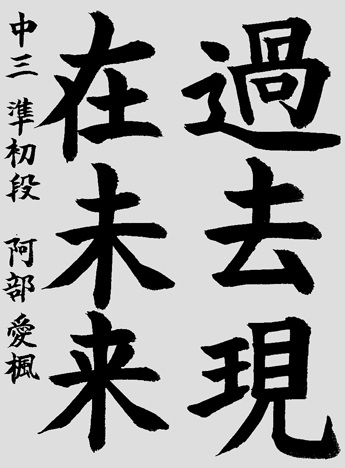 過去現
在未来
中三 準初段 阿部愛楓